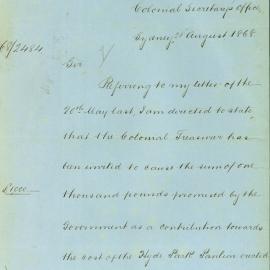 Colonial Secretary's Office,
Sydney 21 August 1868.
68/2484
Sir
Referring to my letter of the
20th May last, I am directed to state
that the Colonial Treasurer has
been invited to cause the sum of one
£1000
thousand pounds promised by the
Government as a contribution towards
the cost of the Hyde Park erected